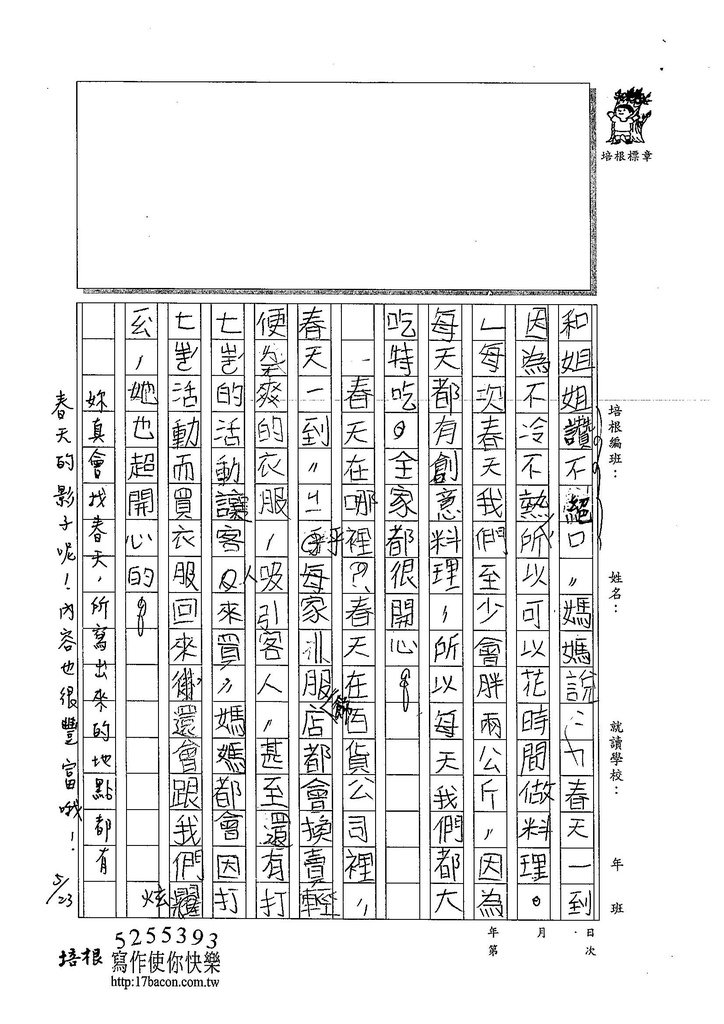 培根標章
培根編班：
姓名：
就讀學校：
年 班
日 次
月
年 第
和姐姐讚不絕口，媽媽說：「春天一到
因為不冷不熱所以可以花時間做料理。
」每次春天我們至少會胖兩公斤，因為
每天都有創意料理，所以每天我們都大
吃特吃。全家都很開心！
春天在哪裡？春天在百貨公司裡，
春天一到，乎每家服飾店都會換賣輕
便爽的衣服，吸引客人，甚至還有打
七的活動讓客人來買，媽媽都會因打
七活動而買衣服回來還會跟我們炫耀
，她也超開心的！
妳真會找春天，所寫出來的地點都有
春天的影子呢！內容也很豐富哦！ 5/23
培根 寫作使你快樂
5255393
http:17bacon.com.tw